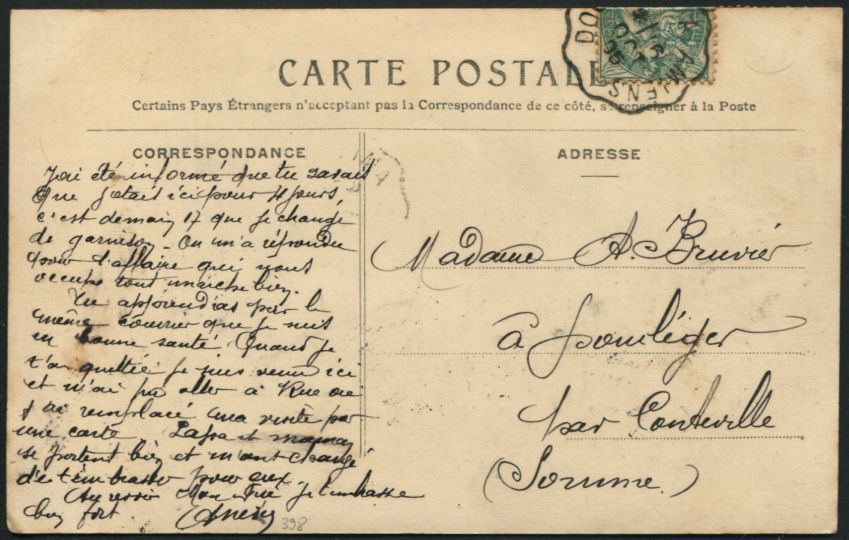 CARTE POSTALE
Certains Pays Étrangers n'acceptant pas la Correspondance de ce côté, se renseigner à la Poste
CORRESPONDANCE
J'ai été informé que tu savais
que j'étais ici pour 4 jours,
c'est demain 17 que je change
de garnison. On m'a répondu
pour l'affaire qui nous
occupe tout marche bien.
Tu apprendras par le
même courrier que je suis
en bonne santé. Quand je
t'ai quittée je suis venu ici
et n'ai pu aller à Rue
j'ai remplacé ma visite par
une carte. Papa et maman
se portent bien et m'ont chargé
de t'embrasser pour eux.
Au revoir Mon je t'embrasse
bien fort.
398
ADRESSE
Madame A. Bruvier
à
par Conteville
(Somme.)
AMIENS